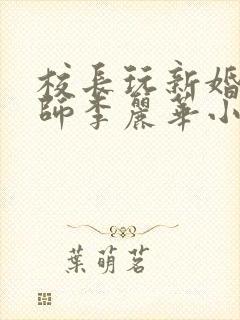 校長玩新婚
師李麗華小
葉萌茗